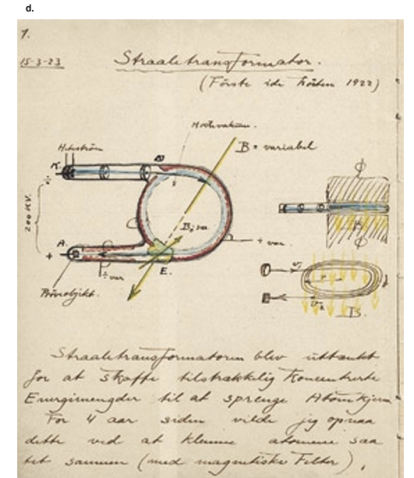 d.
1.
15-3-23
Straaletransformator.
(Förste ide hösten 1922)
Höchvakuum.
B = variabel
Hilfsström
K.
200 KV.
A.
+
E.
+ var.
Pröveobjekt.
B.
Straaletransformatoren blev uttænkt
for at skaffe tilstrækkelig Koncentrerte
Energimengder til at sprenge Atomkjern
For 4 aar siden vilde jeg opnaa
dette ved at klemme atomene saa
tet sammen (med magnetiske Felter),